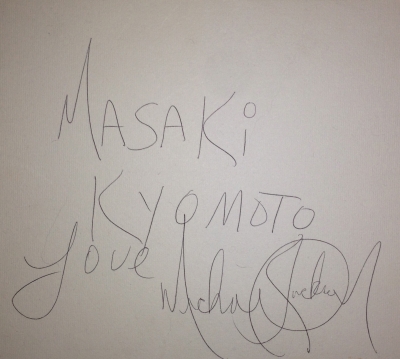 MASAKi
KYOMOTO
Love Michael Jackson